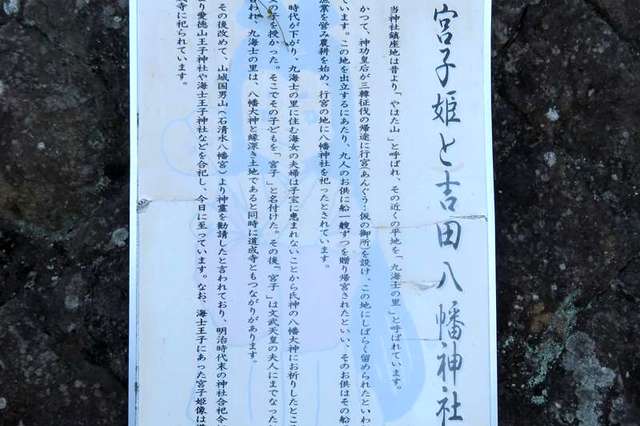 宮子姫と吉田八幡神社
当神社鎮座地は昔より、「やはた山」と呼ばれ、その近くの平地を、「九海士の里」と呼ばれています。
かつて、神功皇后が三韓征伐の帰途に行宮（あんぐう：仮の御所）を設け、この地にしばらく留められたといわ
ています。この地を出立するにあたり、九人のお供に船一艘ずつを贈り帰宮されたといい、そのお供はその船
漁業を営み農耕を始め、行宮の地に八幡神社を祀ったとされています。
時代が下がり、九海士の里に住む海女の夫婦は子宝に恵まれないことから氏神の八幡大神にお祈りしたとこ
の子を授かった。そこでその子どもを、「宮子」と名付けた。その後「宮子」は文武天皇の夫人にまでなった
われ、九海士の里は、八幡大神と縁深き土地であると同時に道成寺ともつながりがあります。
その後改めて、山城国男山（石清水八幡宮）より神霊を勧請したと言われており、明治時代末の神社合祀令
り愛徳山王子神社や海士王子神社などを合祀し、今日に至っています。なお、海士王子にあった宮子姫像は道
寺に祀られています。